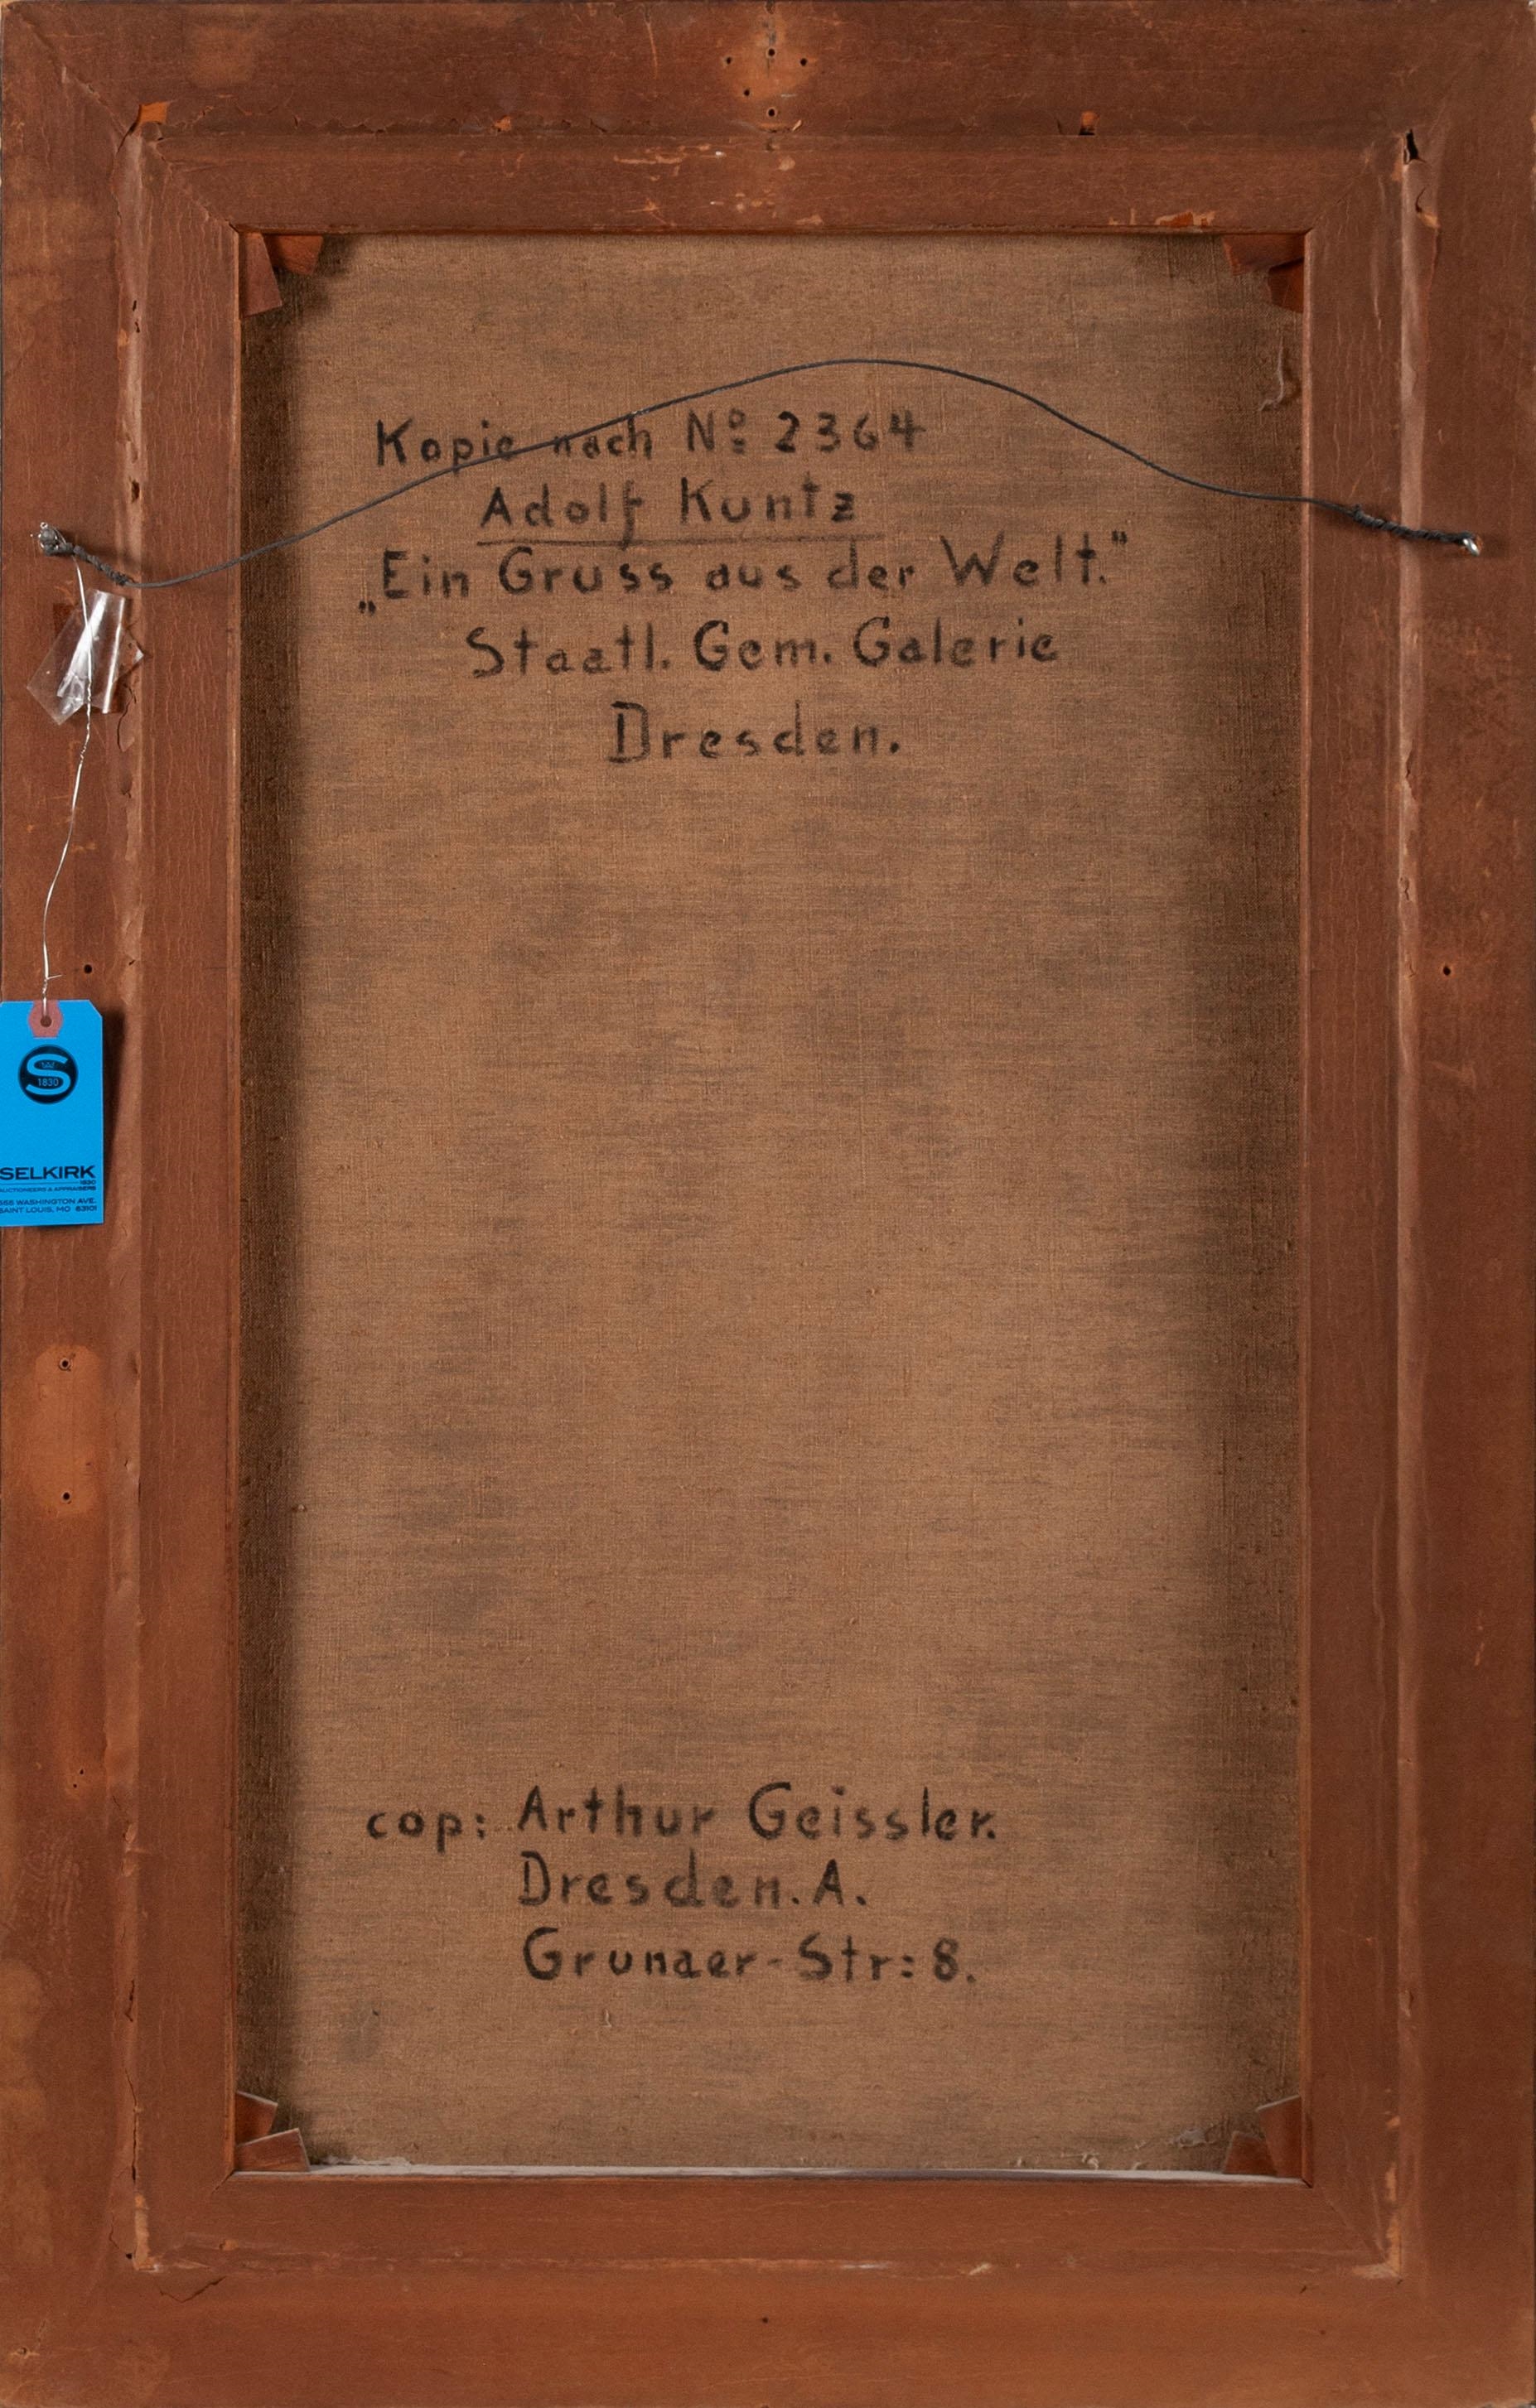 Kopie nach Nº 2364
Adolf Kuntz
„Ein Gruss aus der Welt."
Staatl. Gem. Galerie
Dresden.
S
1830
SELKIRK
1830
AUCTIONEERS & APPRAISERS
WASHINGTON AVE.
SAINT LOUIS, MO 63101
cop: Arthur Geissler.
Dresden. A.
Grunaer-Str: 8.